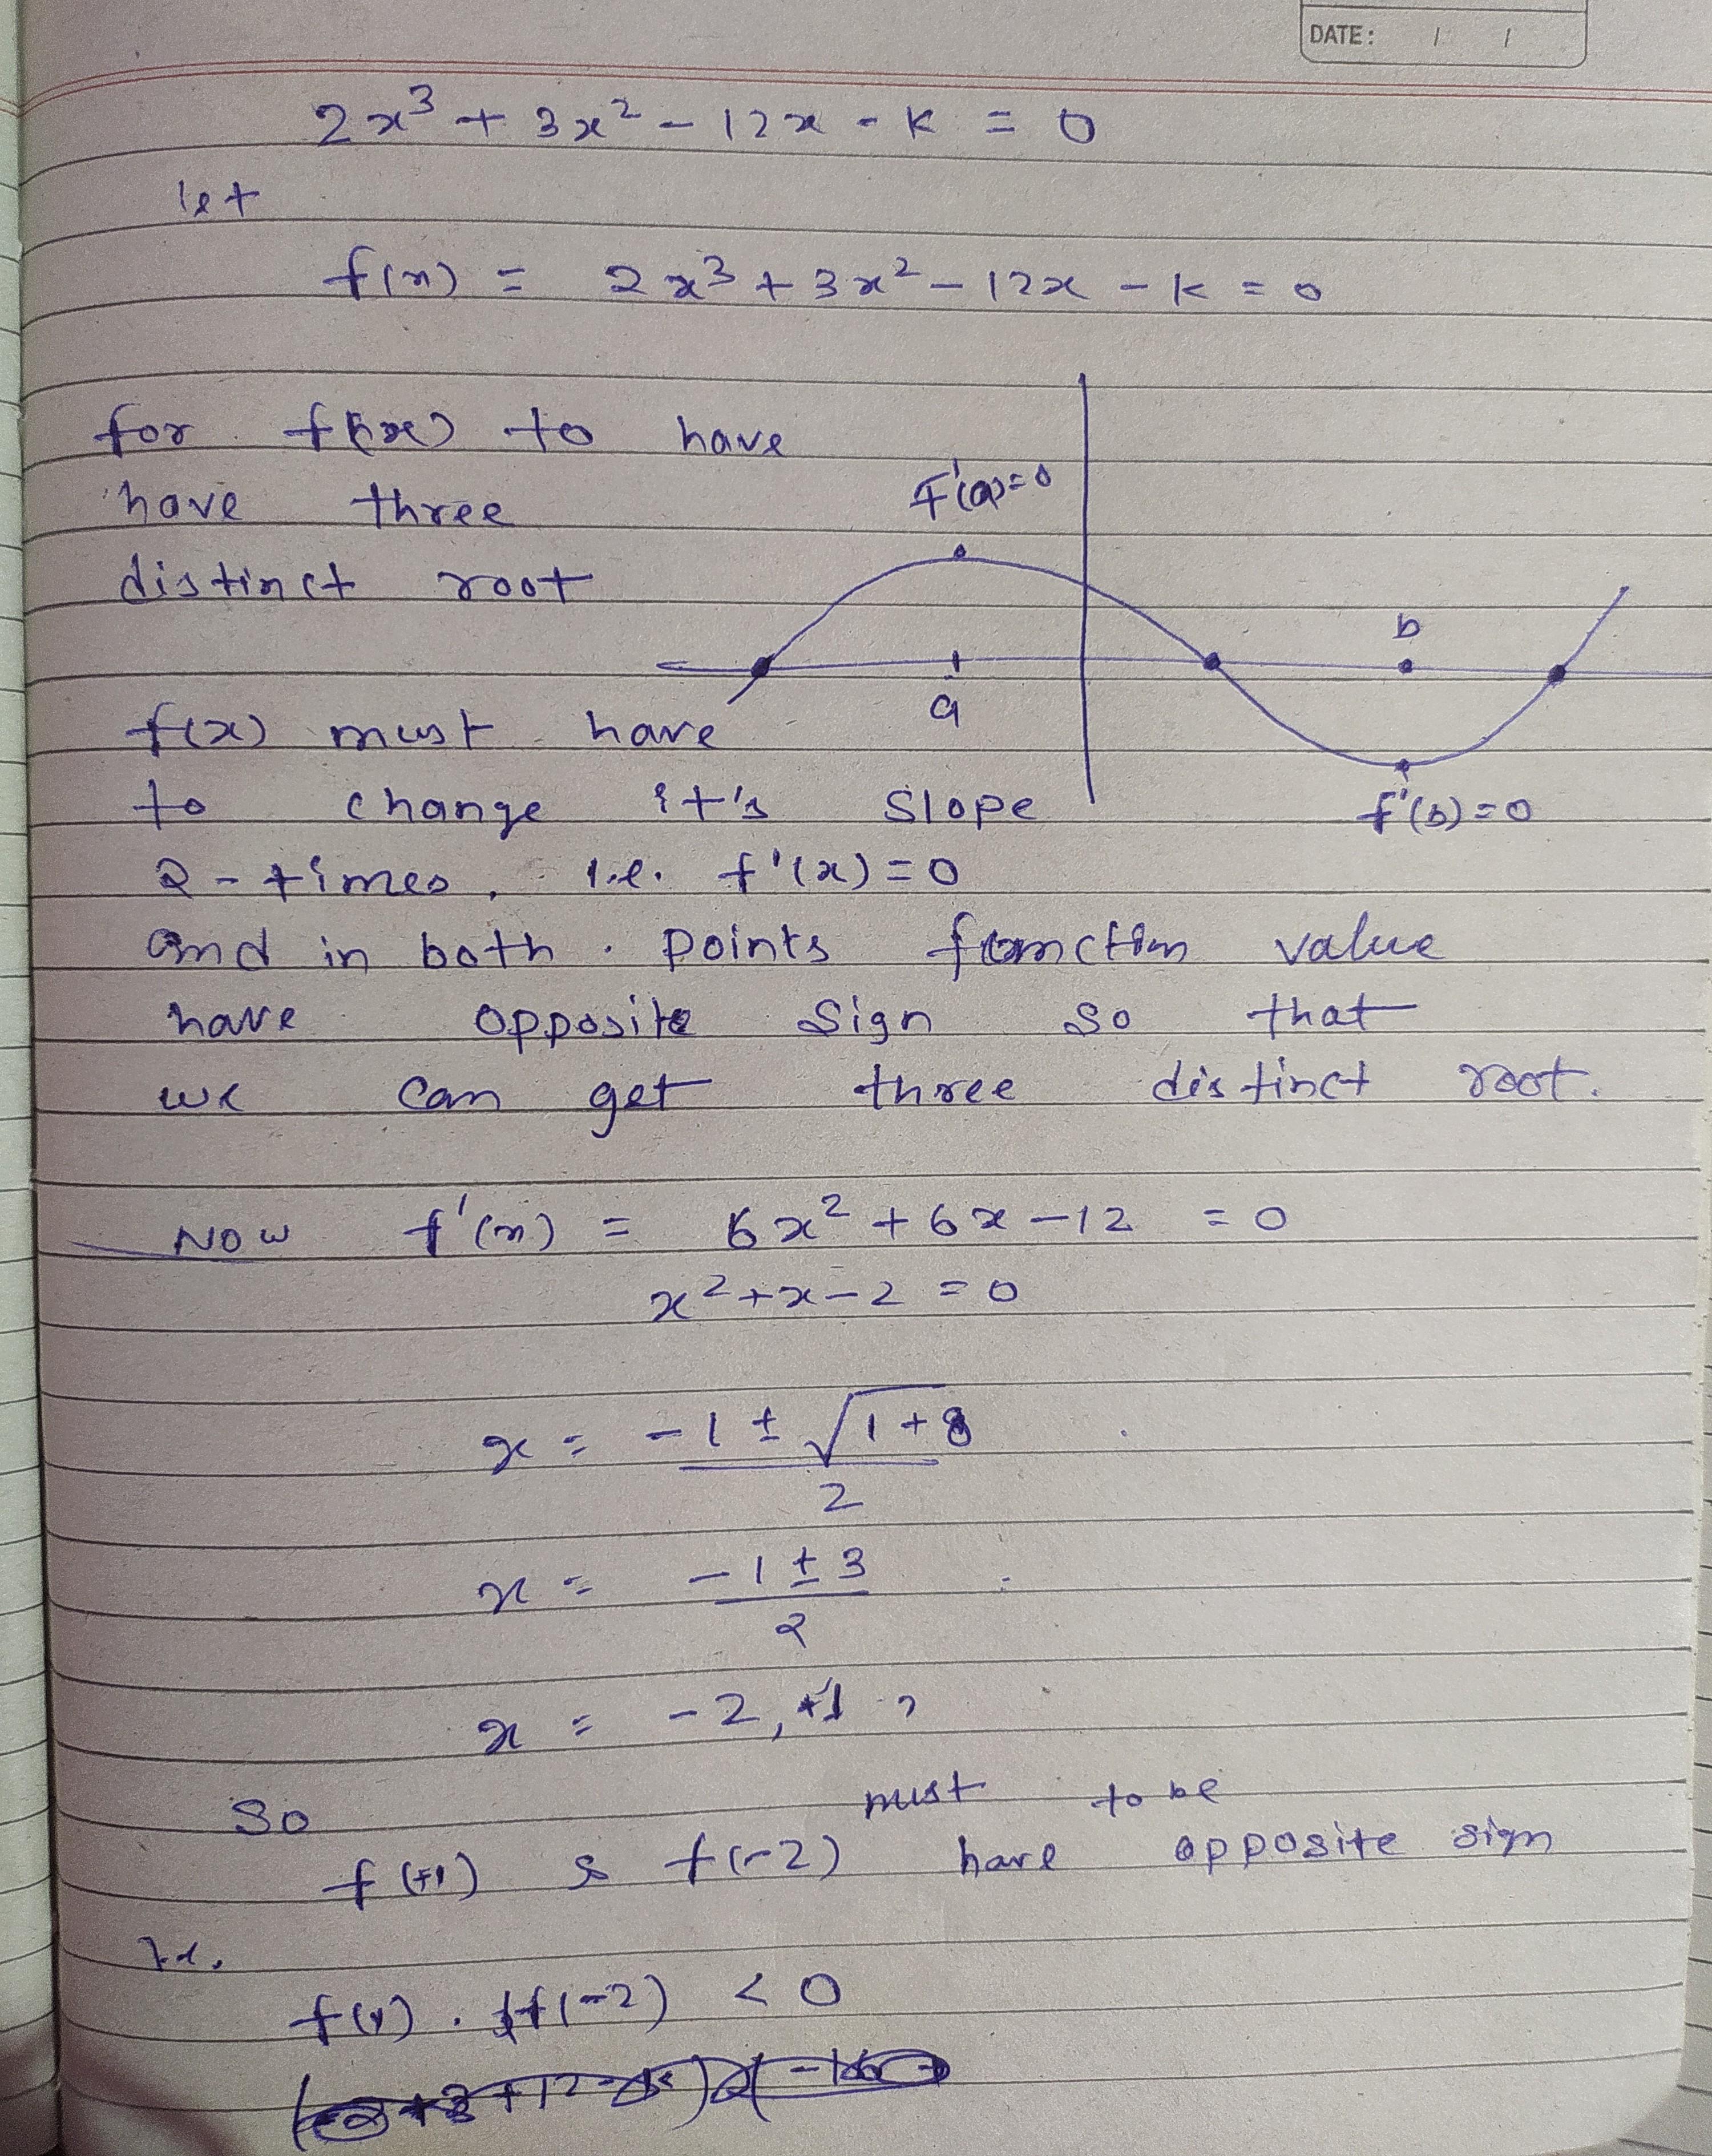 DATE: / /
2x³ + 3x² - 12x - k = 0
let
f(x) = 2x³ + 3x² - 12x - k = 0
for f(x) to have
F'(a)=0
have three
distinct root
b
a
f(x) must have
to change it's slope
f'(b)=0
2-times, i.e. f'(x)=0
and in both . points function value
have opposite sign so that
we can get three distinct root.
Now f'(x) = 6x² + 6x - 12 = 0
x² + x - 2 = 0
x = -1 ± √1+8
2
x = -1 ± 3
2
x = -2, +1,
must to be
So
f(+1) & f(-2) have opposite sign
i.e.
f(1) . f(-2) < 0